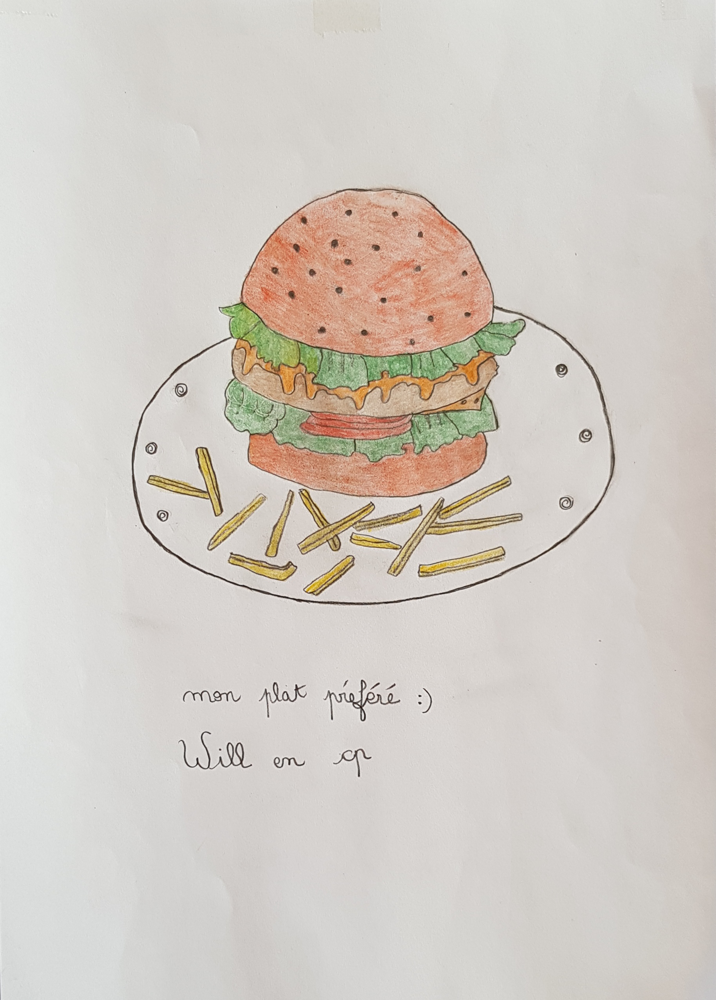 mon plat préféré :)
Will en cp